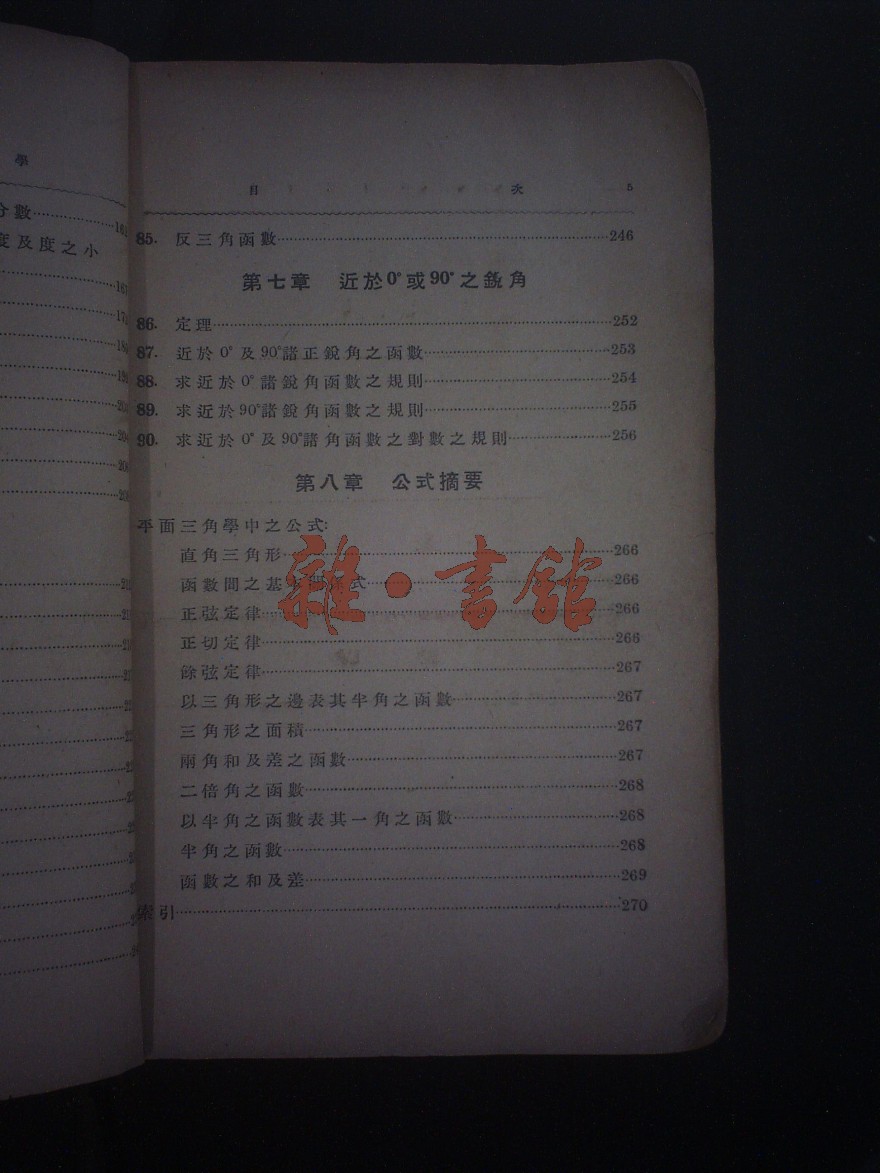 學
分數
度及度之小
目 次 5
85. 反三角函數 246
第七章 近於0°或90°之銳角
86. 定理 252
87. 近於0°及90°諸正銳角之函數 253
88. 求近於0°諸銳角函數之規則 254
89. 求近於90°諸銳角函數之規則 255
90. 求近於0°及90°諸角函數之對數之規則 256
第八章 公式摘要
平面三角學中之公式:
直角三角形 266
函數間之基 式 266
正弦定律 266
正切定律 266
餘弦定律 267
以三角形之邊表其半角之函數 267
三角形之面積 267
兩角和及差之函數 267
二倍角之函數 268
以半角之函數表其一角之函數 268
半角之函數 268
函數之和及差 269
索引 270
雜·書館